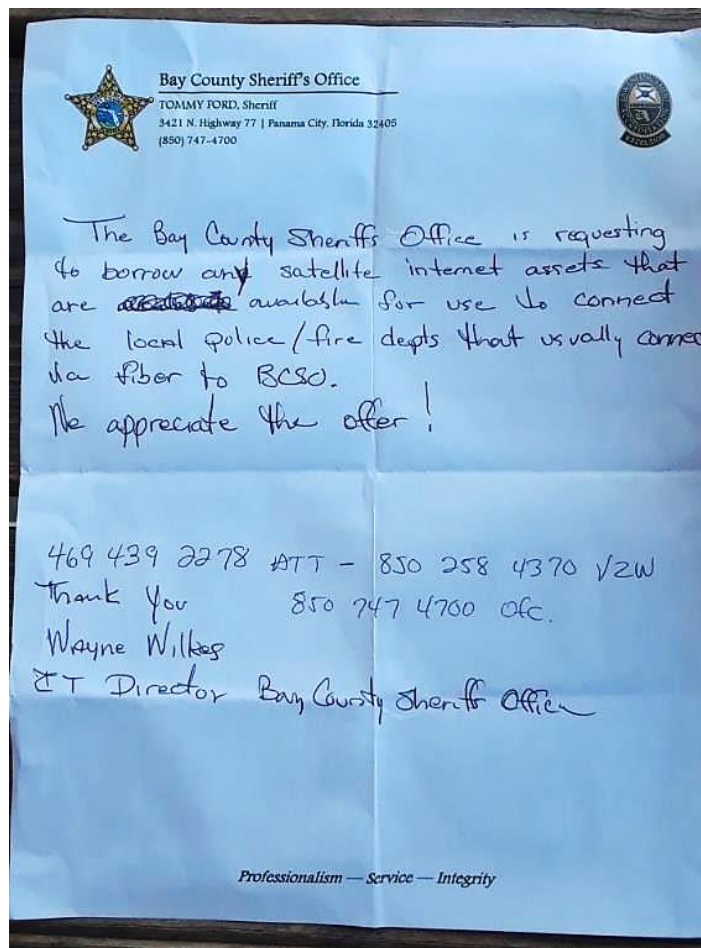 Bay County Sheriff's Office
TOMMY FORD, Sheriff
3421 N. Highway 77 | Panama City, Florida 32405
(850) 747-4700
EXCELSIOR
The Bay County Sheriffs Office is requesting
to borrow any satellite internet assets that
are available for use to connect
the local police/fire depts that usually connec
via fiber to BCSO.
We appreciate the offer!
469 439 2278 ATT - 850 258 4370 VZW
Thank You 850 747 4700 Ofc.
Wayne Wilkes
IT Director Bay County Sheriff Office
Professionalism — Service — Integrity